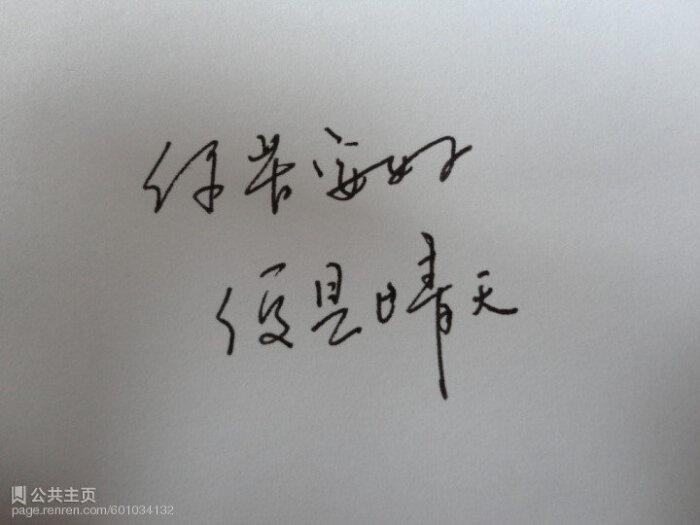 你若安好
便是晴天
公共主页
page.renren.com/601034132